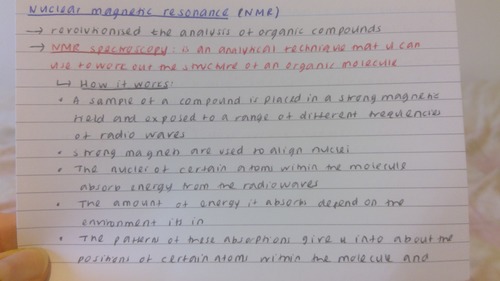 Nuclear magnetic resonance (NMR)
→ revolutionised the analysis of organic compounds
→ NMR spectroscopy: is an analytical technique that u can
use to work out the structure of an organic molecule
↳ How it works:
• A sample of a compound is placed in a strong magnetic
field and exposed to a range of different frequencies
of radio waves
• strong magnets are used to align nuclei
• The nuclei of certain atoms within the molecule
absorb energy from the radiowaves
• The amount of energy it absorbs depend on the
environment its in
• The pattern of these absorptions give u info about the
positions of certain atoms within the molecule and